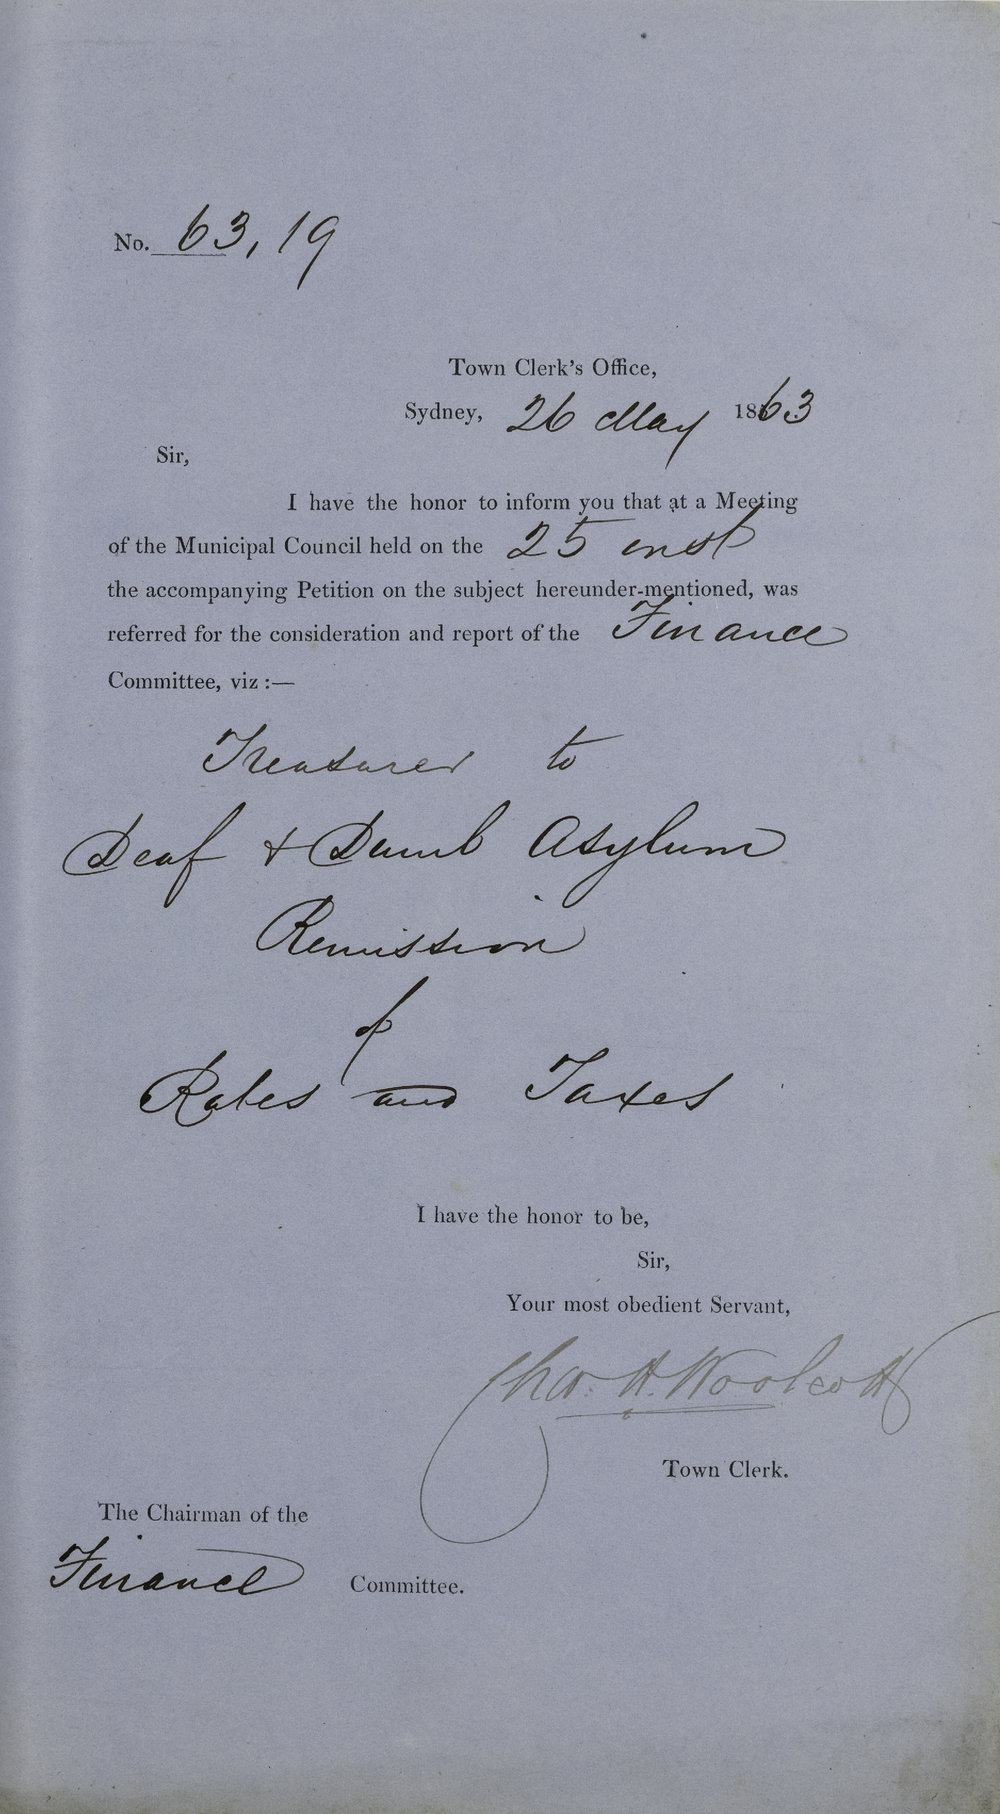 No. 63,19
Town Clerk's Office,
Sydney, 26 May 1863
Sir,
I have the honor to inform you that at a Meeting
of the Municipal Council held on the 25 inst
the accompanying Petition on the subject hereunder-mentioned, was
referred for the consideration and report of the Finance
Committee, viz :—
Treasurer to
Deaf & Dumb Asylum
Remission
of
Rates and Taxes
I have the honor to be,
Sir,
Your most obedient Servant,
Chas. H. Woolcott
Town Clerk.
The Chairman of the
Finance Committee.